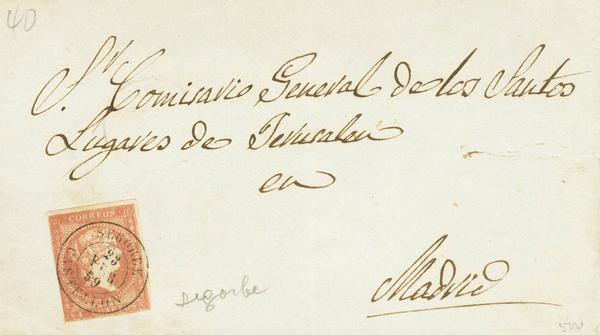 40
Sr Comisario General de los Santos
Lugares de Jerusalen
en
Madrid
CORREOS
SEGORBE
23
59
CASTELLON
segorbe
500